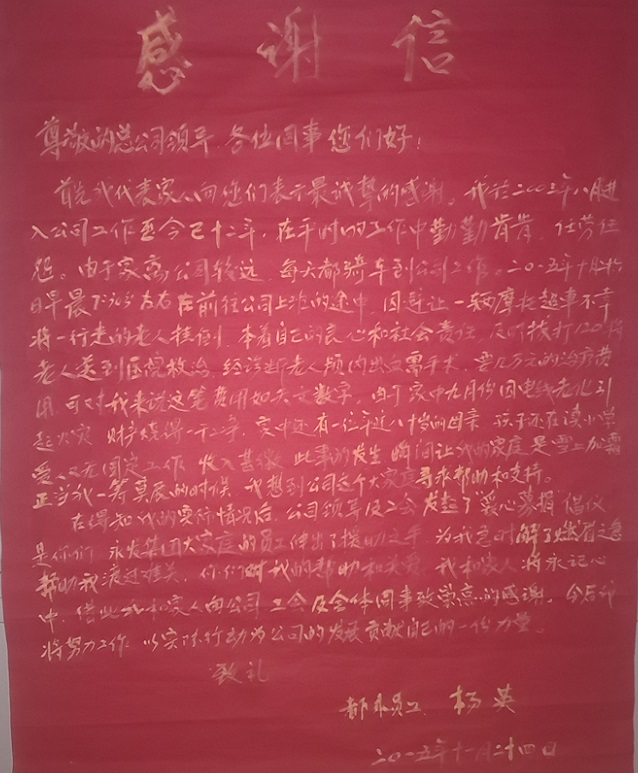 感谢信
尊敬的总公司领导、各位同事您们好！
首先我代表家人向您们表示最诚挚的感谢。我於二00三年八月进
入公司工作至今已十二年，在平时的工作中勤勤肯肯，任劳任
怨。由于家离公司较远，每天都骑车到公司工作。二0一五年十月
日早晨 左右在前往公司上班的途中，因避让一辆摩托超车不幸
将一行走的老人挂倒，本着自己的良心和社会责任，及时拨打120将
老人送到医院救治，经诊断老人颅内出血需手术，要几万元的治疗费
用，可对我来说这笔费用如天文数字，由于家中九月份因电线老化引
起火灾，财产烧得一干二净，家中还有一位年近八十岁的母亲，孩子还在读小学
爱人又无固定工作，收入甚微，此事的发生瞬间让我的家庭是雪上加霜
正当我一筹莫展的时候，我想到公司这个大家庭寻求帮助和支持。
在得知我的实际情况后，公司领导及工会发起了爱心募捐倡仪，
是你们，永发集团大家庭的员工伸出了援助之手，为我急时解了燃眉之急
帮助我渡过难关，你们对我的帮助和关爱，我和家人将永记心
中，借此我和家人向公司、工会及全体同事致崇高的感谢，今后我
将努力工作，以实际行动为公司的发展贡献自己的一份力量。
致礼
员工：杨英
二0一五年十一月二十四日